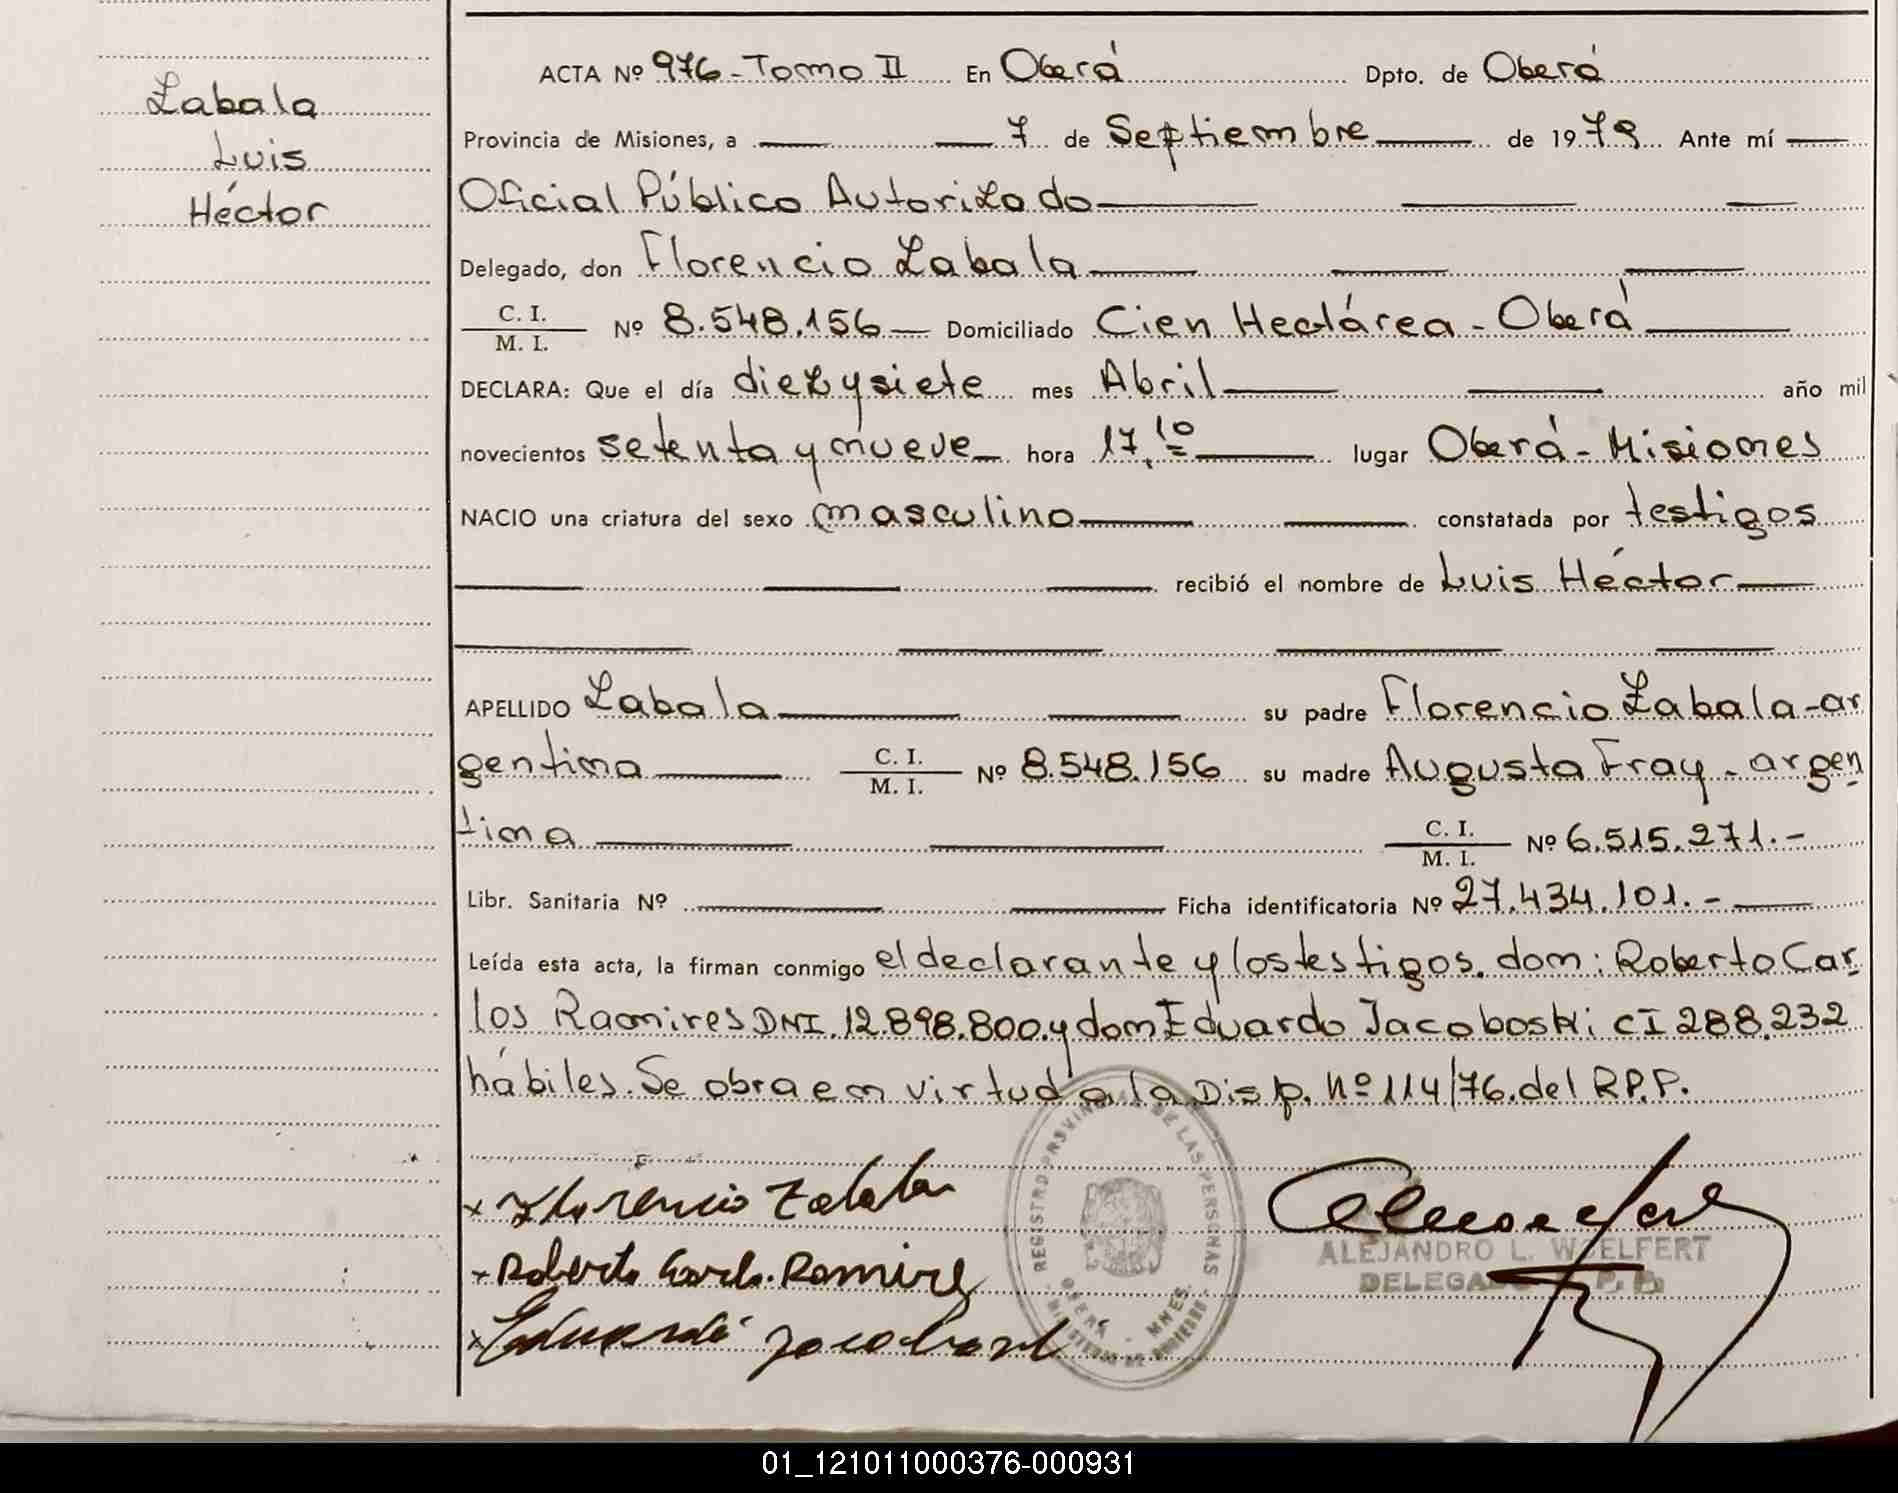 Zabala
Luis
Héctor
ACTA Nº 976-Tomo II En Oberá Dpto. de Oberá
Provincia de Misiones, a 7 de Septiembre de 1979 Ante mí
Oficial Público Autorizado
Delegado, don Florencio Zabala
C. I.
M. I. Nº 8.548.156 Domiciliado Cien Hectárea - Oberá
DECLARA: Que el día diezysiete mes Abril año mil
novecientos setenta y nueve hora 17,10 lugar Oberá - Misiones
NACIO una criatura del sexo masculino constatada por testigos
recibió el nombre de Luis Héctor
APELLIDO Zabala su padre Florencio Zabala-ar
gentina C. I.
M. I. Nº 8.548.156 su madre Augusta Fray - argen
tina C. I.
M. I. Nº 6.515.271.-
Libr. Sanitaria Nº Ficha identificatoria Nº 27.434.101.-
Leída esta acta, la firman conmigo el declarante y los testigos. don: Roberto Car
los Ramires DNI. 12.898.800. y don Eduardo Jacoboski CI 288.232
hábiles. Se obra en virtud a la Disp. Nº 114/76. del R.P.P.
x Florencio Zabala
x Roberto Carlo. Ramire
x Eduardo
REGISTRO PROVINCIAL DE LAS PERSONAS
OBERÁ - MNES.
MINISTERIO DE GOBIERNO
ALEJANDRO L. WOELFERT
DELEGADO R. P. P.
01_121011000376-000931